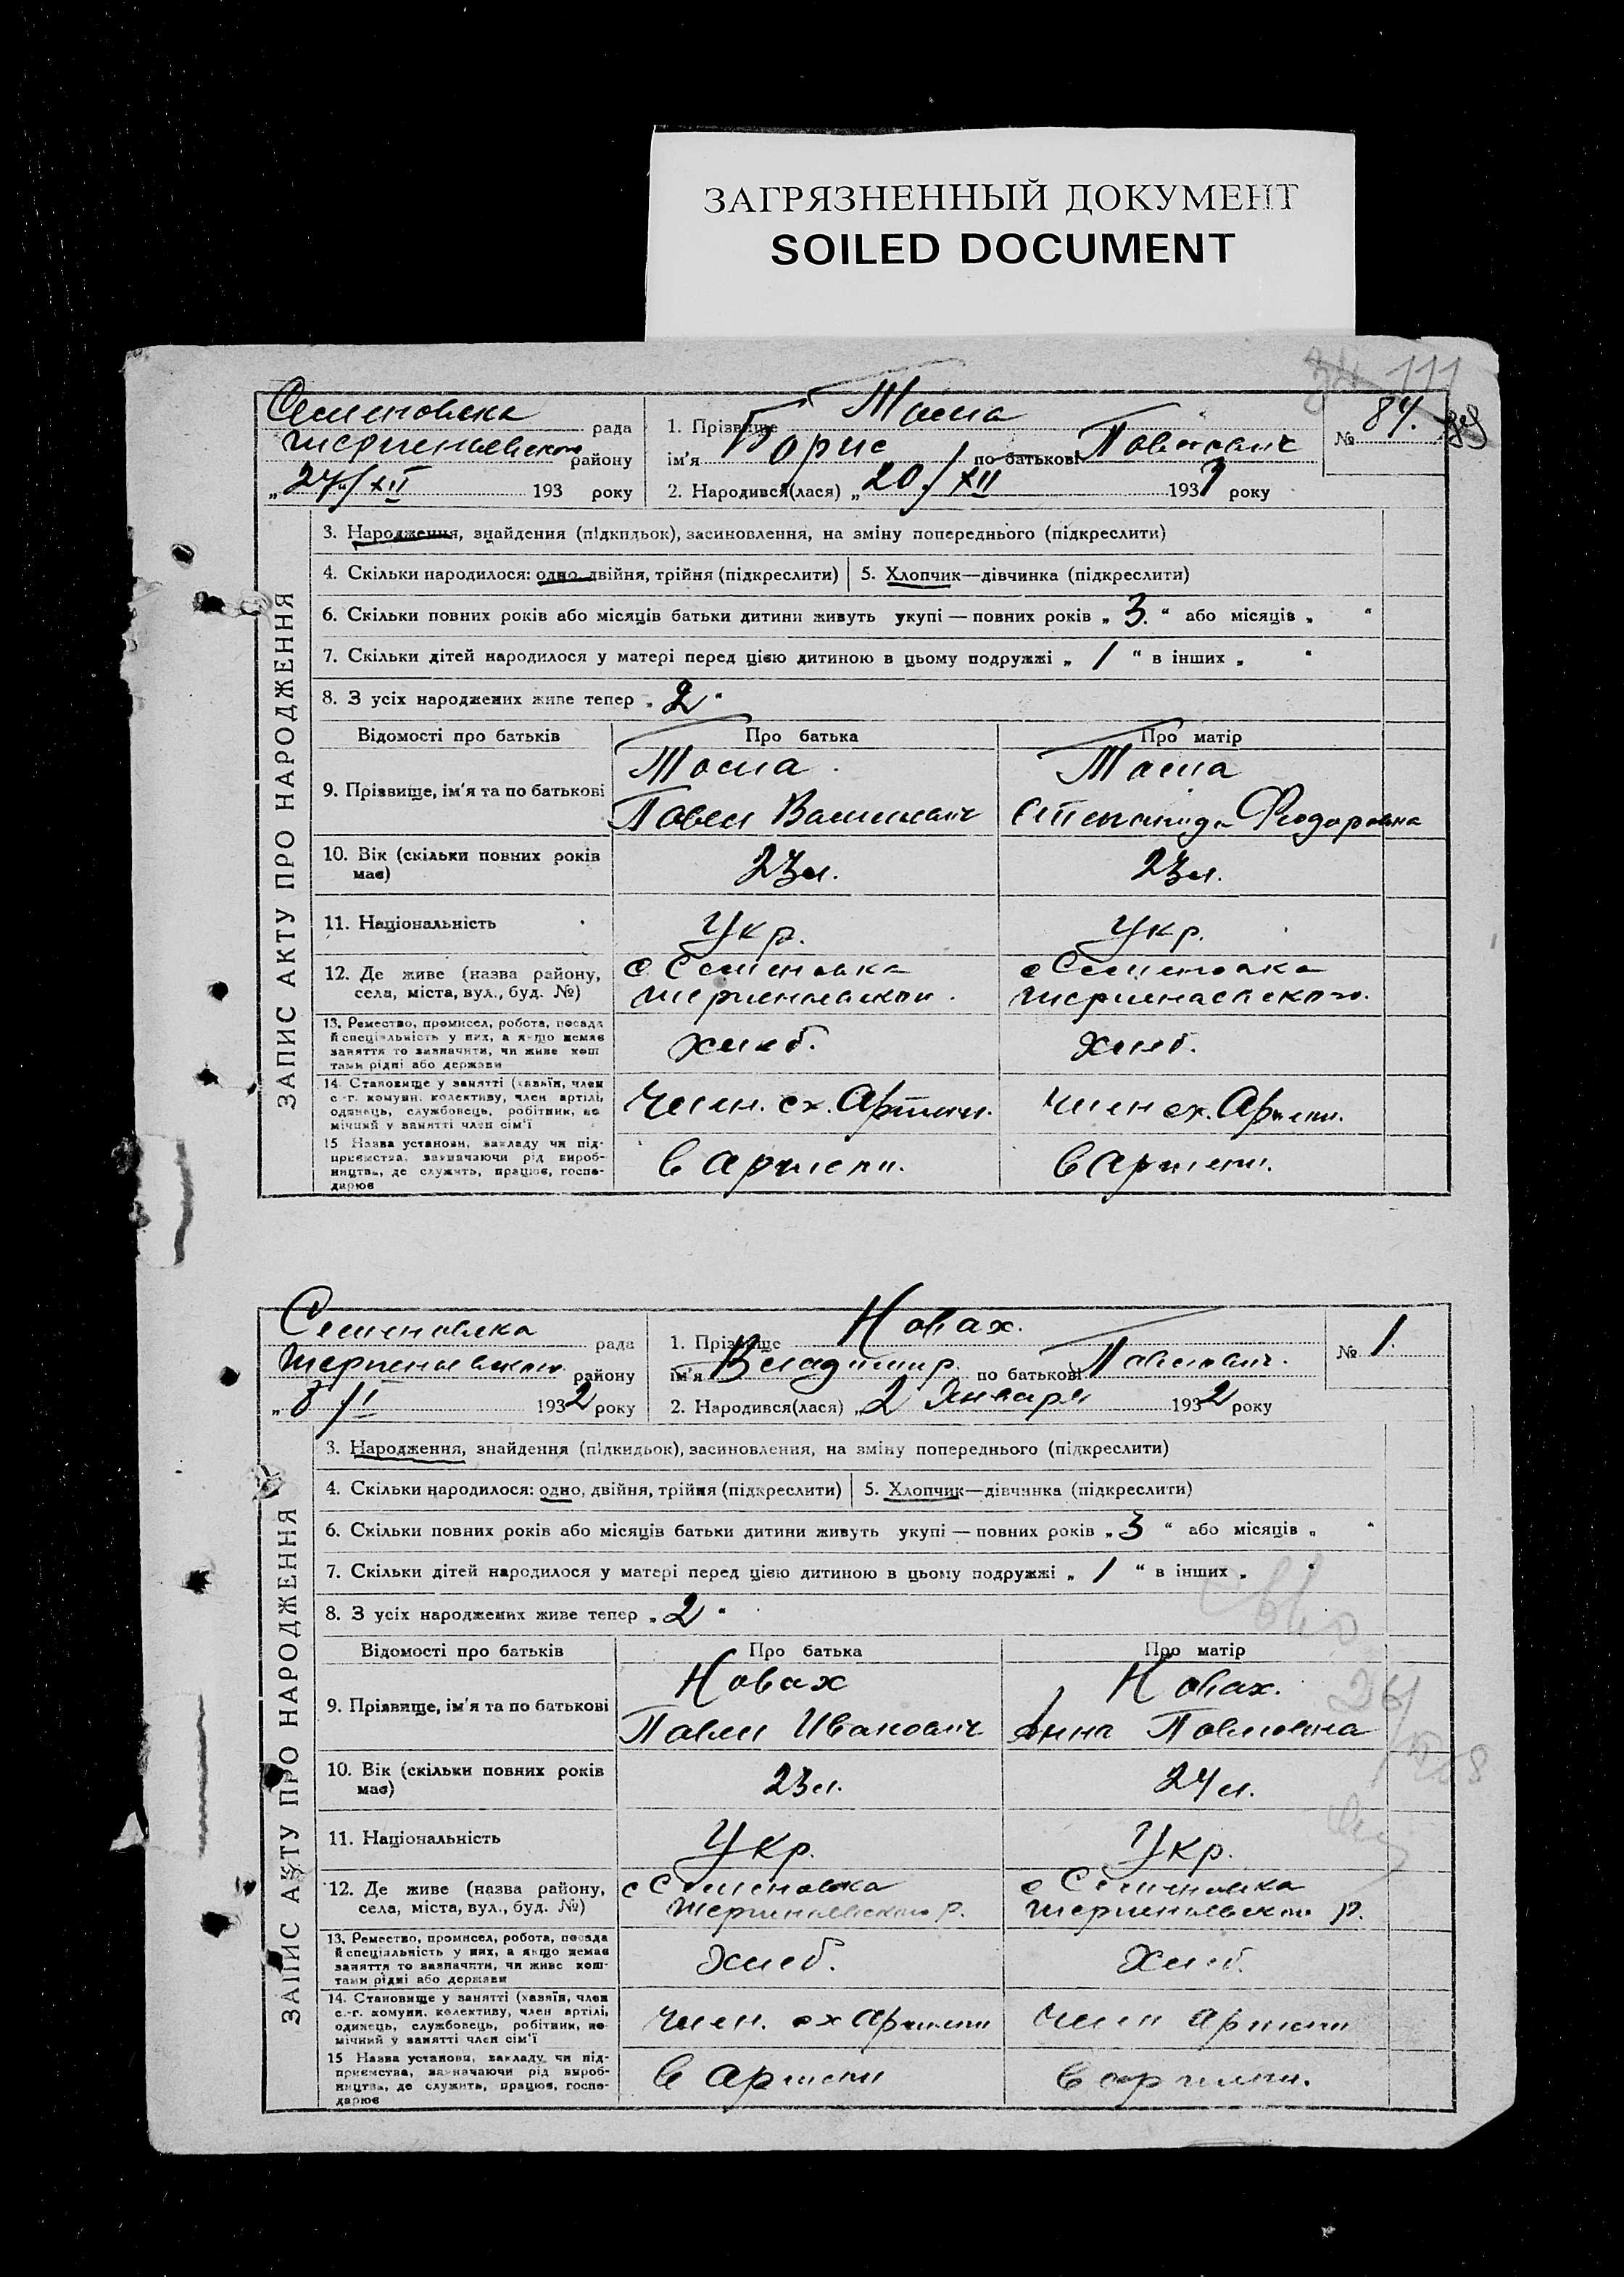 ЗАГРЯЗНЕННЫЙ ДОКУМЕНТ
SOILED DOCUMENT
111
Семеновска рада
району
"27/XII 193 року
1. Прізвище
ім'я Борис по батькові Павлович
2. Народився(лася) „20/XII 193 року
№ 84.
ЗАПИС АКТУ ПРО НАРОДЖЕННЯ
3. Народження, знайдення (підкидьок), засиновлення, на зміну попереднього (підкреслити)
4. Скільки народилося: одно, двійня, трійня (підкреслити) 5. Хлопчик—дівчинка (підкреслити)
6. Скільки повних років або місяців батьки дитини живуть укупі — повних років „ 3. “ або місяців „ “
7. Скільки дітей народилося у матері перед цією дитиною в цьому подружжі „ 1 “ в інших „ “
8. З усіх народжених живе тепер „ 2 “
Відомості про батьків Про батька Про матір
9. Прізвище, ім'я та по батькові
Павел Федоровна
10. Вік (скільки повних років має) 23 л. 23 л.
11. Національність Укр. Укр.
12. Де живе (назва району, села, міста, вул., буд. №) с Семеновка с Семеновка
13. Ремество, промисел, робота, посада й спеціяльність у них, а якщо немає заняття то визначити, чи живе коштами рідні або держави Хлеб. Хлеб.
14. Становище у занятті (хазяїн, член с.-г. комуни, колективу, член артілі, одинець, службовець, робітник, помічний у занятті член сім'ї член. сх. Артели. член сх. Артели.
15 Назва установи, закладу чи підприємства, зазначаючи рід виробництва, де служить, працює, господарює в артели. в артели.
Семеновска рада
району
"8/I 1932 року
1. Прізвище Новах.
ім'я Владимир. по батькові Павлович.
2. Народився(лася) „2 Января 1932 року
№ 1.
ЗАПИС АКТУ ПРО НАРОДЖЕННЯ
3. Народження, знайдення (підкидьок), засиновлення, на зміну попереднього (підкреслити)
4. Скільки народилося: одно, двійня, трійня (підкреслити) 5. Хлопчик—дівчинка (підкреслити)
6. Скільки повних років або місяців батьки дитини живуть укупі — повних років „ 3 “ або місяців „ “
7. Скільки дітей народилося у матері перед цією дитиною в цьому подружжі „ 1 “ в інших „ “
8. З усіх народжених живе тепер „ 2 “
Відомості про батьків Про батька Про матір
9. Прізвище, ім'я та по батькові Новах Новах.
Павел Иванович Анна Павловна
10. Вік (скільки повних років має) 23 л. 24 л.
11. Національність Укр. Укр.
12. Де живе (назва району, села, міста, вул., буд. №) с Семеновка р. с Семеновка р.
13. Ремество, промисел, робота, посада й спеціяльність у них, а якщо немає заняття то визначити, чи живе коштами рідні або держави Хлеб. Хлеб.
14. Становище у занятті (хазяїн, член с.-г. комуни, колективу, член артілі, одинець, службовець, робітник, помічний у занятті член сім'ї член. сх артели член артели
15 Назва установи, закладу чи підприємства, зазначаючи рід виробництва, де служить, працює, господарює в артели в артели.